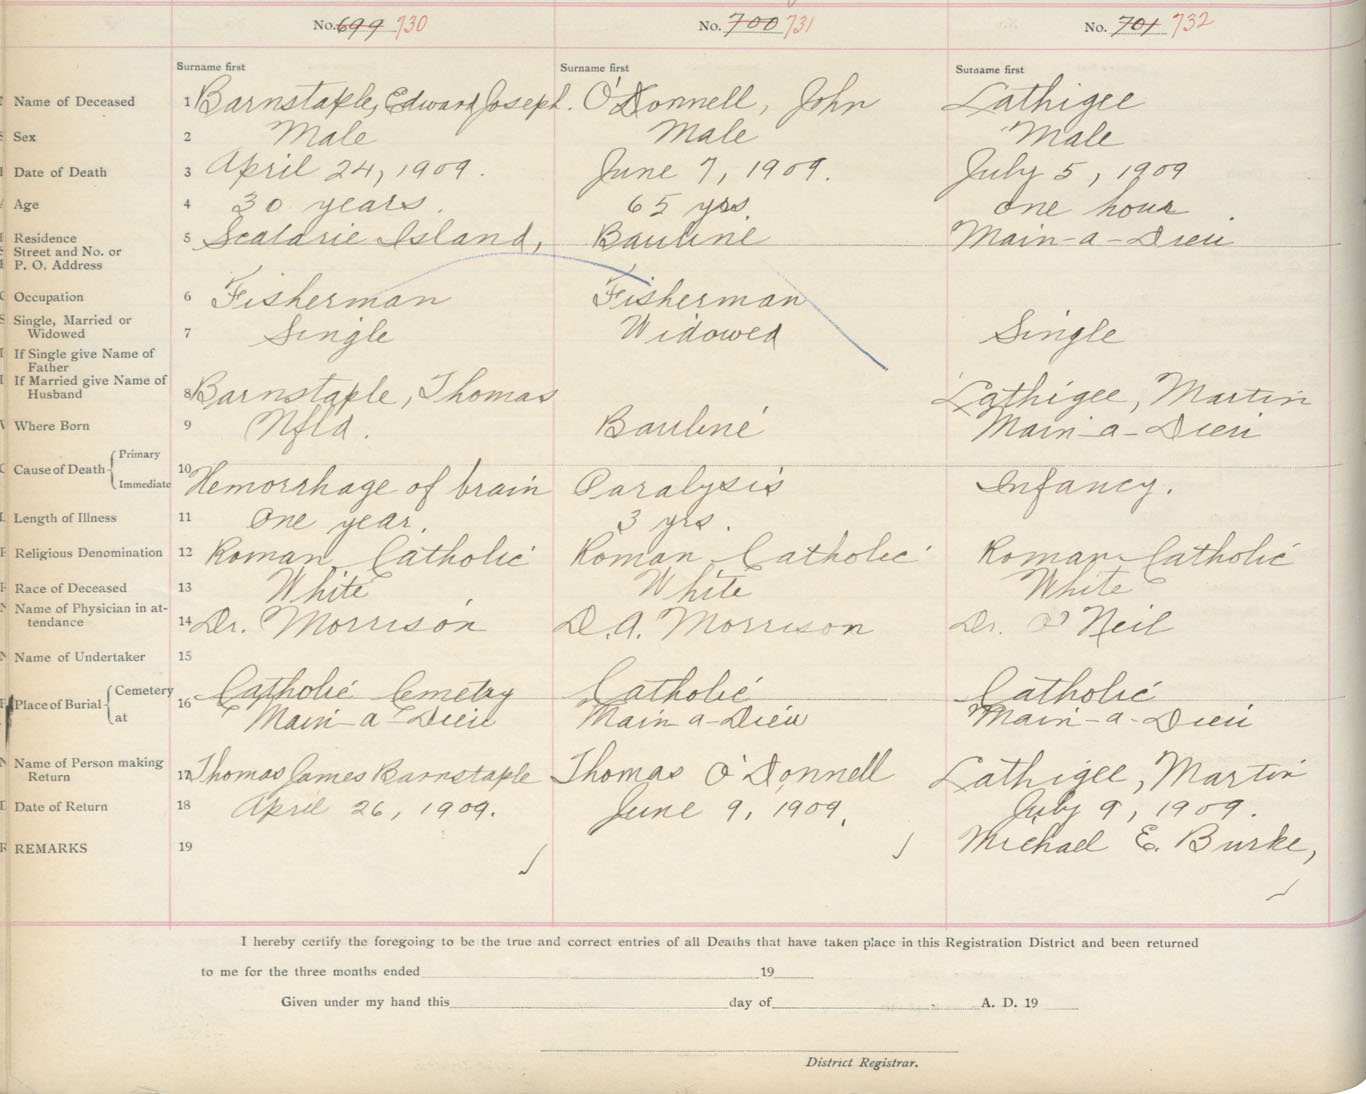 No. 699 730 No. 700 731 No. 701 732
Surname first Surname first Surname first
Name of Deceased 1 Barnstaple, Edward Joseph. O'Donnell, John Lathigee
Sex 2 Male Male Male
Date of Death 3 April 24, 1909. June 7, 1909. July 5, 1909
Age 4 30 years. 65 yrs one hour
Residence Street and No. or P. O. Address 5 Scatarie Island, Bauline Main-a-Dieu
Occupation 6 Fisherman Fisherman
Single, Married or Widowed 7 Single Widowed Single
If Single give Name of Father
If Married give Name of Husband 8 Barnstaple, Thomas Lathigee, Martin
Where Born 9 Nfld. Bauline Main-a-Dieu
Cause of Death Primary Immediate 10 Hemorrhage of brain Paralysis Infancy.
Length of Illness 11 One year. 3 yrs.
Religious Denomination 12 Roman Catholic Roman Catholic Roman Catholic
Race of Deceased 13 White White White
Name of Physician in attendance 14 Dr. Morrison D. A. Morrison Dr. O'Neil
Name of Undertaker 15
Place of Burial Cemetery at 16 Catholic Cemetry Catholic Catholic
Main-a-Dieu Main-a-Dieu Main-a-Dieu
Name of Person making Return 17 Thomas James Barnstaple Thomas O'Donnell Lathigee, Martin
Date of Return 18 April 26, 1909. June 9, 1909. July 9, 1909.
REMARKS 19 Michael E. Burke,
I hereby certify the foregoing to be the true and correct entries of all Deaths that have taken place in this Registration District and been returned
to me for the three months ended 19
Given under my hand this day of A. D. 19
District Registrar.